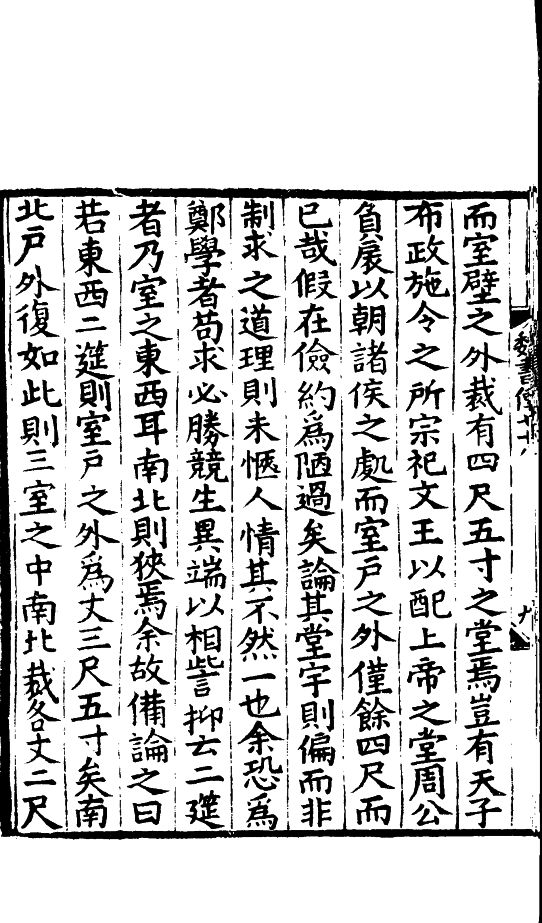 而室壁之外裁有四尺五寸之堂焉豈有天子
布政施令之所宗祀文王以配上帝之堂周公
負扆以朝諸侯之處而室戶之外僅餘四尺而
已哉假在儉約爲陋過矣論其堂宇則偏而非
制求之道理則未愜人情其不然一也余恐爲
鄭學者苟求必勝競生異端以相訾抑云二筵
者乃室之東西耳南北則狹焉余故備論之曰
若東西二筵則室戶之外爲丈三尺五寸矣南
北戶外復如此則三室之中南北裁各丈二尺